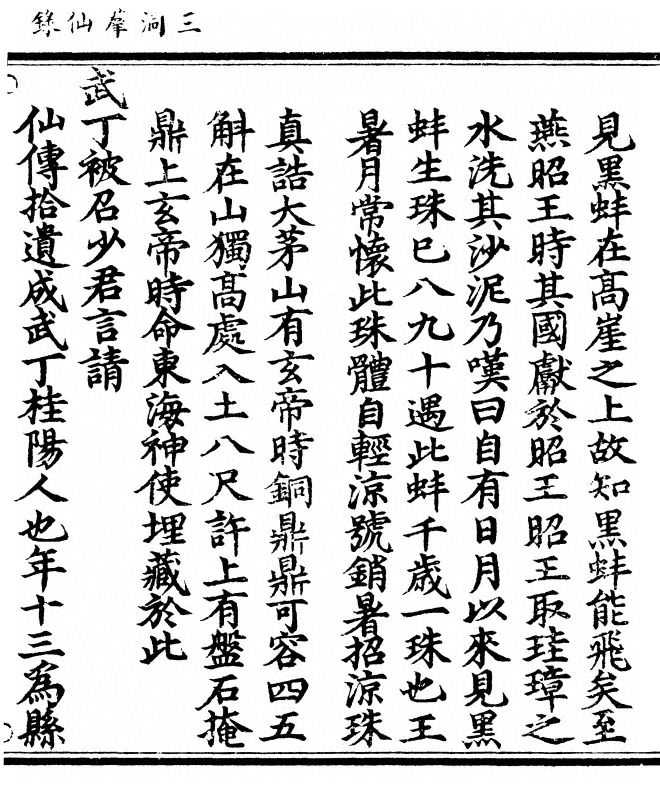 三洞羣仙錄
見黑蚌在高崖之上故知黑蚌能飛矣至
燕昭王時其國獻於昭王昭王取珪璋之
水洗其沙泥乃嘆曰自有日月以來見黑
蚌生珠已八九十遇此蚌千歲一珠也王
暑月常懷此珠體自輕涼號銷暑招涼珠
真誥大茅山有玄帝時銅鼎鼎可容四五
斛在山獨高處入土八尺許上有盤石掩
鼎上玄帝時命東海神使埋藏於此
武丁被召少君言請
仙傳拾遺成武丁桂陽人也年十三為縣